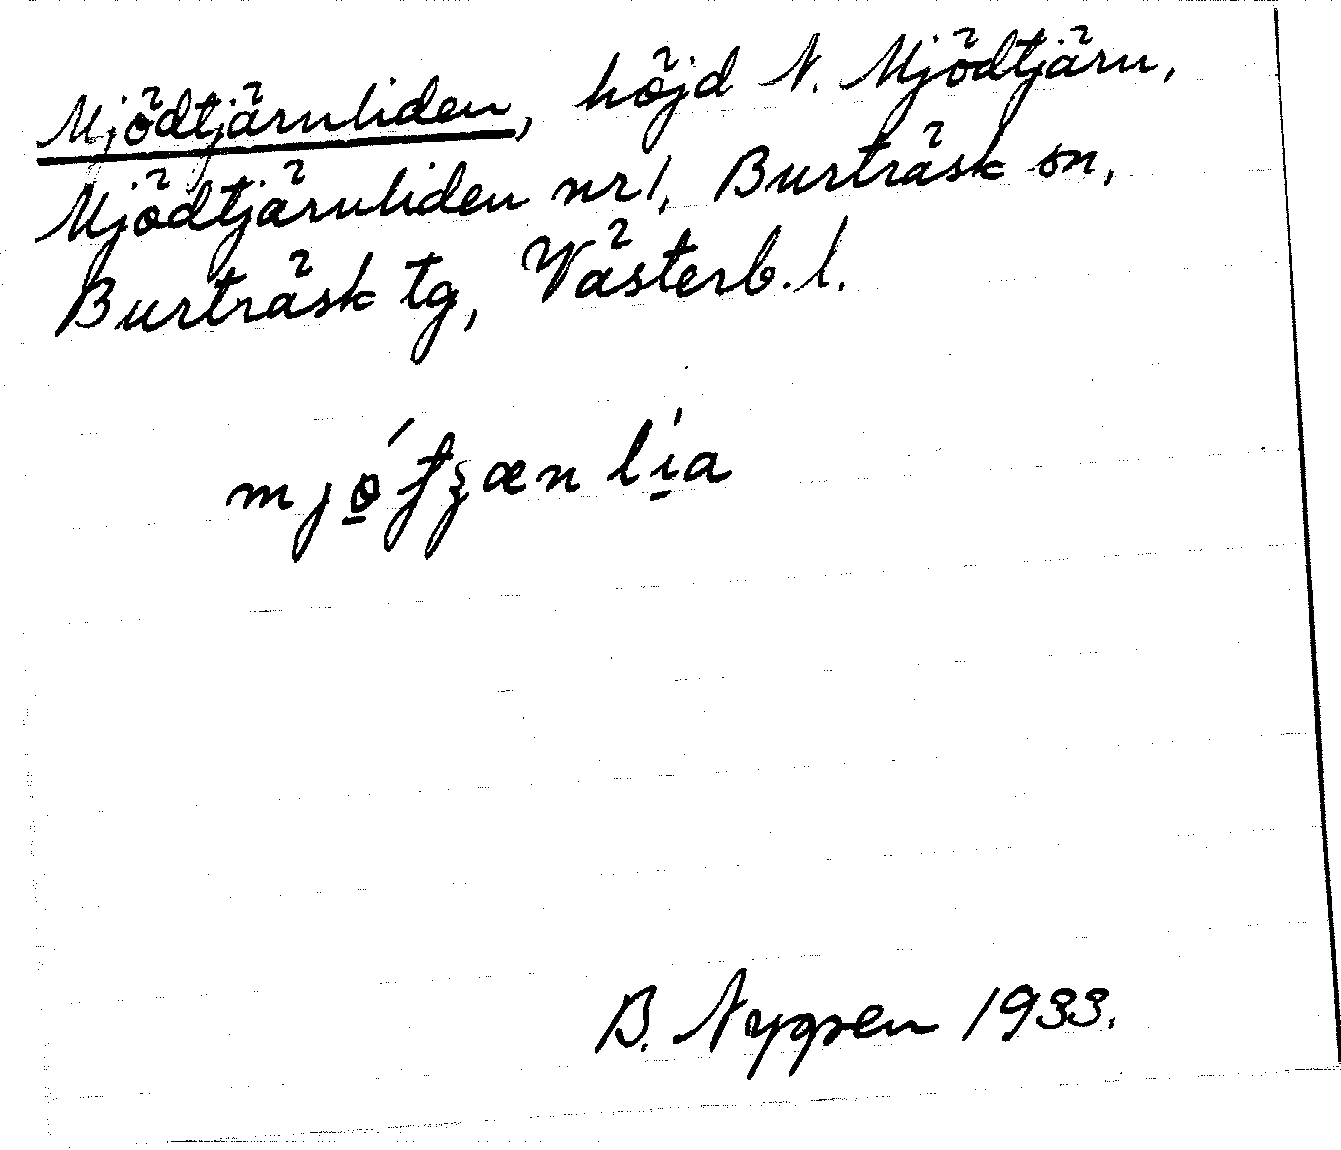 Mjödtjärnliden, höjd N. Mjödtjärn,
Mjödtjärnliden nr 1, Burträsk sn,
Burträsk tg, Västerb. l.
B. Nygren 1933.